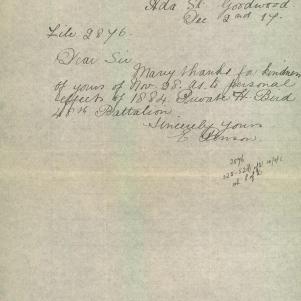 Ada St. Goodwood
Dec 2nd 17.
File 2876.
Dear Sir
Many thanks for kindness
of yours of Nov. 28. as to personal
effects of 1884 Private H. Bird
48th Battalion
Sincerely yours
E
2876